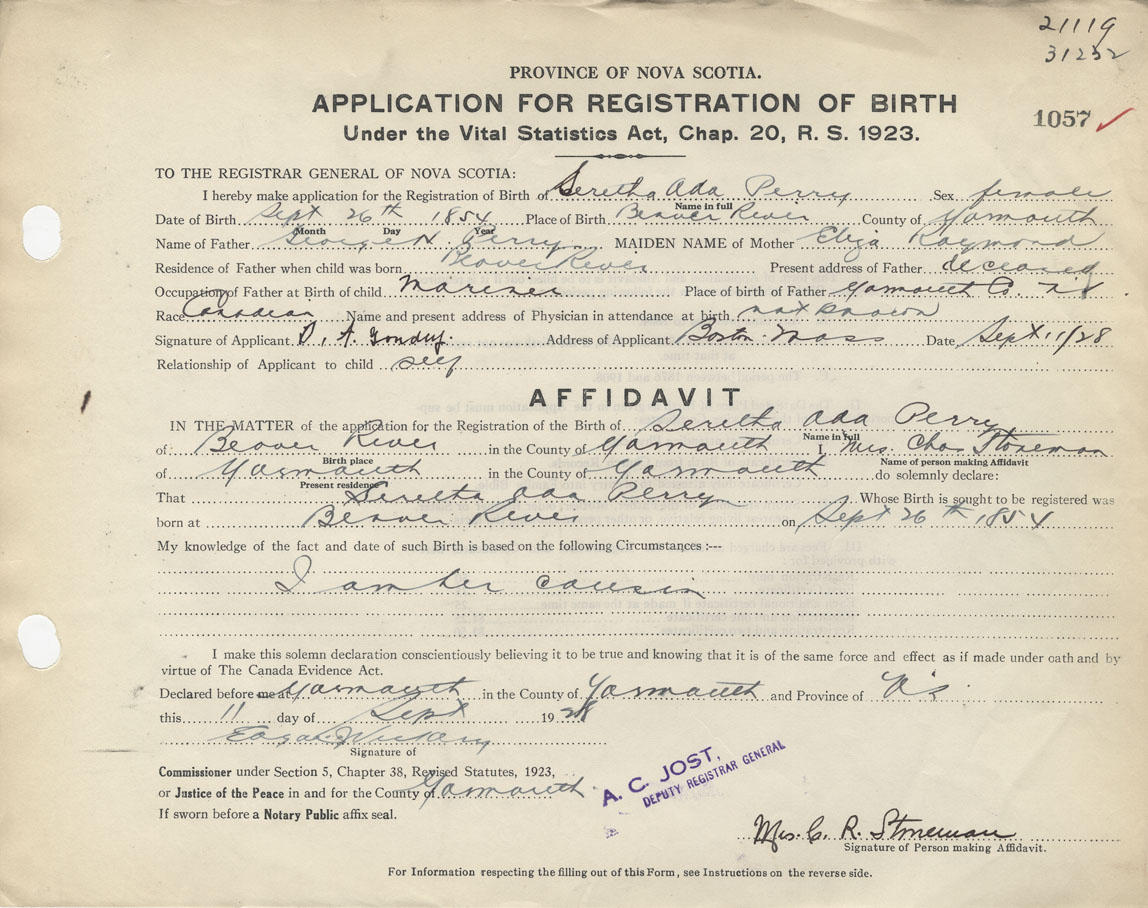 21119
31232
PROVINCE OF NOVA SCOTIA.
APPLICATION FOR REGISTRATION OF BIRTH
1057
Under the Vital Statistics Act, Chap. 20, R. S. 1923.
TO THE REGISTRAR GENERAL OF NOVA SCOTIA:
I hereby make application for the Registration of Birth of Seretha Ada Perry Sex female
Name in full
Date of Birth Sept 26th 1854 Place of Birth Beaver River County of Yarmouth
Month Day Year
Name of Father George N. Perry MAIDEN NAME of Mother Eliza Raymond
Residence of Father when child was born Beaver River Present address of Father deceased
Occupation of Father at Birth of child Mariner Place of birth of Father Yarmouth Co. N S
Race Canadian Name and present address of Physician in attendance at birth not known
Signature of Applicant Address of Applicant Boston Mass Date Sept 11/28
Relationship of Applicant to child self
AFFIDAVIT
IN THE MATTER of the application for the Registration of the Birth of Seretha Ada Perry
Name in full
of Beaver River in the County of Yarmouth I, Mrs. Chas Stoneman
Birth place Name of person making Affidavit
of Yarmouth in the County of Yarmouth do solemnly declare:
Present residence
That Seretha Ada Perry Whose Birth is sought to be registered was
born at Beaver River on Sept 26th 1854
My knowledge of the fact and date of such Birth is based on the following Circumstances :---
I am her cousin
I make this solemn declaration conscientiously believing it to be true and knowing that it is of the same force and effect as if made under oath and by
virtue of The Canada Evidence Act.
Declared before me at Yarmouth in the County of Yarmouth and Province of N.S.
this 11 day of Sept 1928
Signature of
Commissioner under Section 5, Chapter 38, Revised Statutes, 1923,
or Justice of the Peace in and for the County of Yarmouth
If sworn before a Notary Public affix seal.
A. C. JOST,
DEPUTY REGISTRAR GENERAL
Mrs. C. R. Stoneman
Signature of Person making Affidavit.
For Information respecting the filling out of this Form, see Instructions on the reverse side.